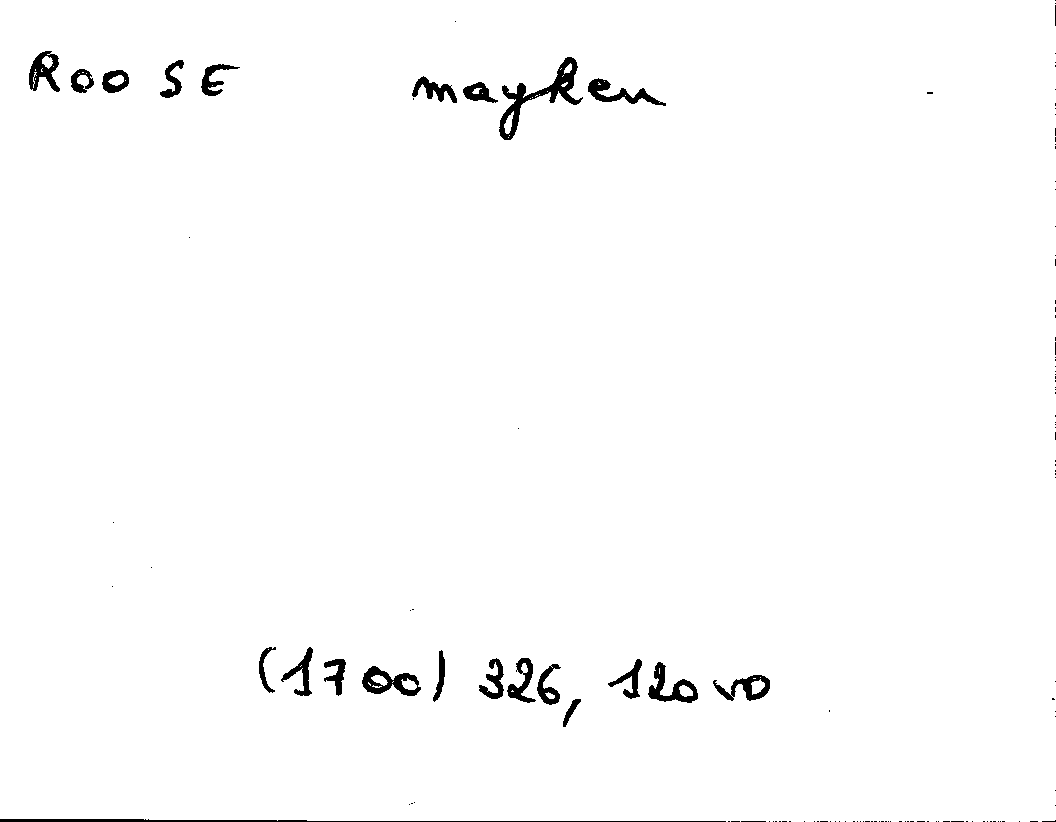 ROOSE mayken
(1700) 326, 120 vo